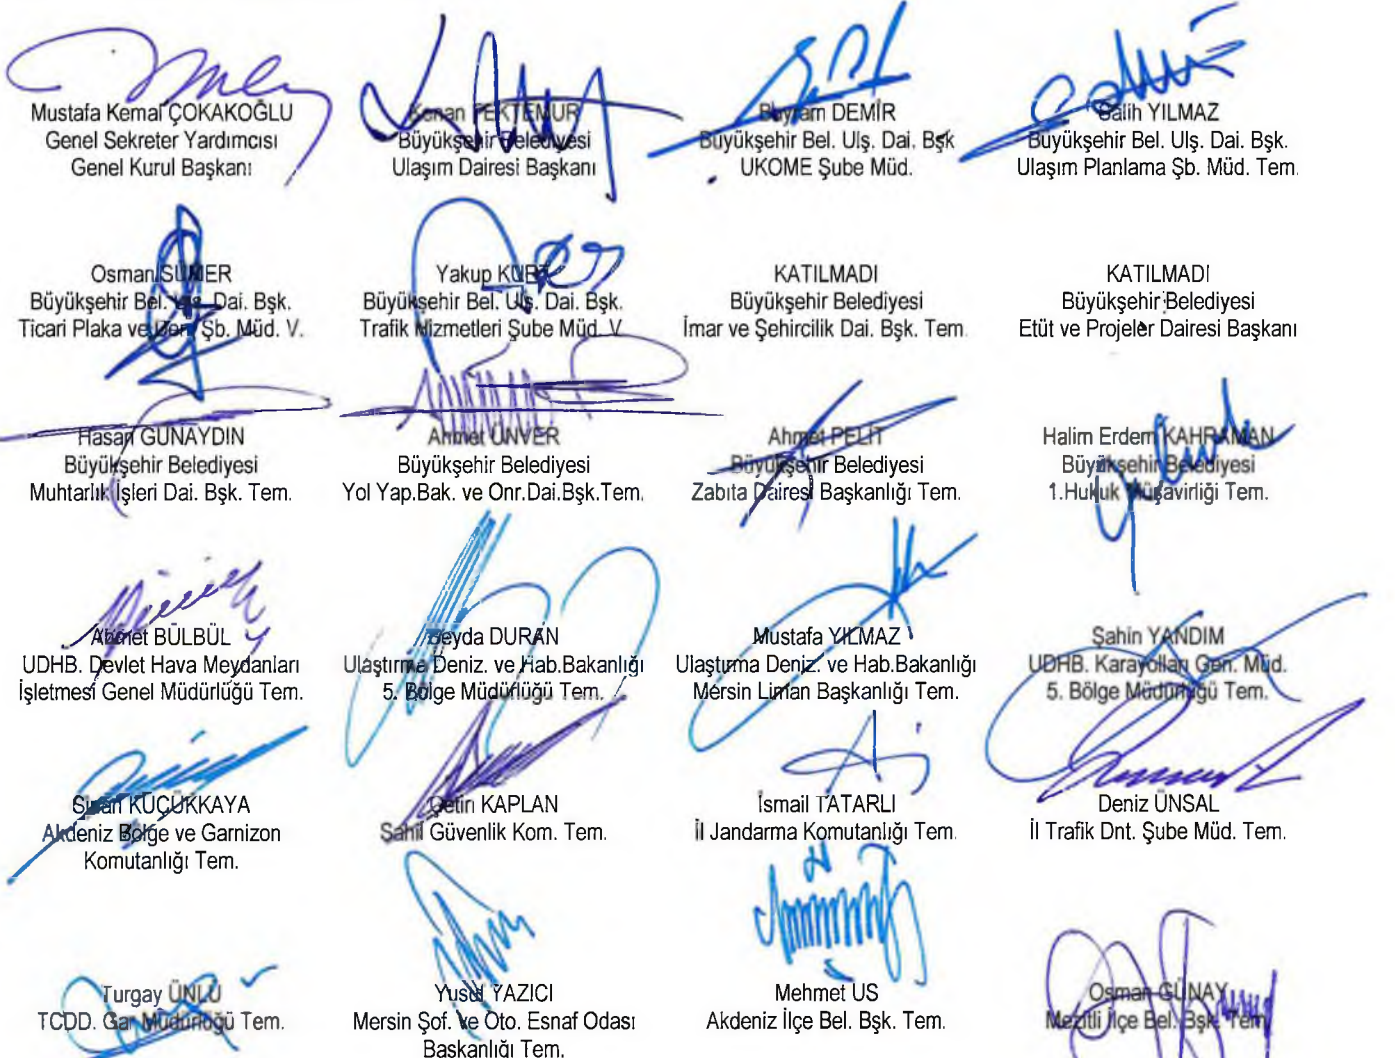 Mustafa Kemal ÇOKAKOĞLU
Genel Sekreter Yardımcısı
Genel Kurul Başkanı
Kenan PEKTEMUR
Büyükşehir Belediyesi
Ulaşım Dairesi Başkanı
Bayram DEMİR
Büyükşehir Bel. Ulş. Dai. Bşk
UKOME Şube Müd.
Salih YILMAZ
Büyükşehir Bel. Ulş. Dai. Bşk.
Ulaşım Planlama Şb. Müd. Tem.
Osman SÜMER
Büyükşehir Bel. Ulş. Dai. Bşk.
Ticari Plaka ve Den. Şb. Müd. V.
Yakup KURT
Büyükşehir Bel. Ulş. Dai. Bşk.
Trafik Hizmetleri Şube Müd. V.
KATILMADI
Büyükşehir Belediyesi
İmar ve Şehircilik Dai. Bşk. Tem.
KATILMADI
Büyükşehir Belediyesi
Etüt ve Projeler Dairesi Başkanı
Hasan GÜNAYDIN
Büyükşehir Belediyesi
Muhtarlık İşleri Dai. Bşk. Tem.
Ahmet ÜNVER
Büyükşehir Belediyesi
Yol Yap.Bak. ve Onr.Dai.Bşk.Tem.
Ahmet PELİT
Büyükşehir Belediyesi
Zabıta Dairesi Başkanlığı Tem.
Halim Erdem KAHRAMAN
Büyükşehir Belediyesi
1.Hukuk Müşavirliği Tem.
Ahmet BÜLBÜL
UDHB. Devlet Hava Meydanları
İşletmesi Genel Müdürlüğü Tem.
Şeyda DURAN
Ulaştırma Deniz. ve Hab.Bakanlığı
5. Bölge Müdürlüğü Tem.
Mustafa YILMAZ
Ulaştırma Deniz. ve Hab.Bakanlığı
Mersin Liman Başkanlığı Tem.
Şahin YANDIM
UDHB. Karayolları Gen. Müd.
5. Bölge Müdürlüğü Tem.
Sinan KÜÇÜKKAYA
Akdeniz Bölge ve Garnizon
Komutanlığı Tem.
Çetin KAPLAN
Sahil Güvenlik Kom. Tem.
İsmail TATARLI
İl Jandarma Komutanlığı Tem.
Deniz ÜNSAL
İl Trafik Dnt. Şube Müd. Tem.
Turgay ÜNLÜ
TCDD. Gar Müdürlüğü Tem.
Yusuf YAZICI
Mersin Şof. ve Oto. Esnaf Odası
Başkanlığı Tem.
Mehmet US
Akdeniz İlçe Bel. Bşk. Tem.
Osman GÜNAY
Mezitli İlçe Bel. Bşk. Tem.